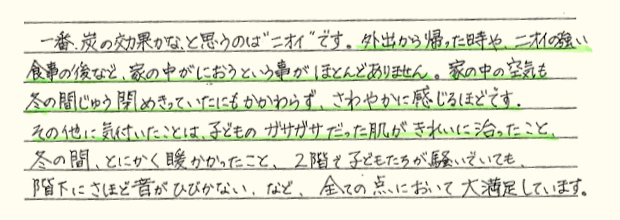 一番、炭の効果かな、と思うのは“ニオイ”です。外出から帰った時や、ニオイの強い
食事の後など、家の中がにおうという事がほとんどありません。家の中の空気も
冬の間じゅう閉めきっていたにもかかわらず、さわやかに感じるほどです。
その他に気付いたことは、子どものガサガサだった肌がきれいに治ったこと、
冬の間、とにかく暖かかったこと、2階で子どもたちが騒いでいても、
階下にさほど音がひびかない、など、全ての点において大満足しています。